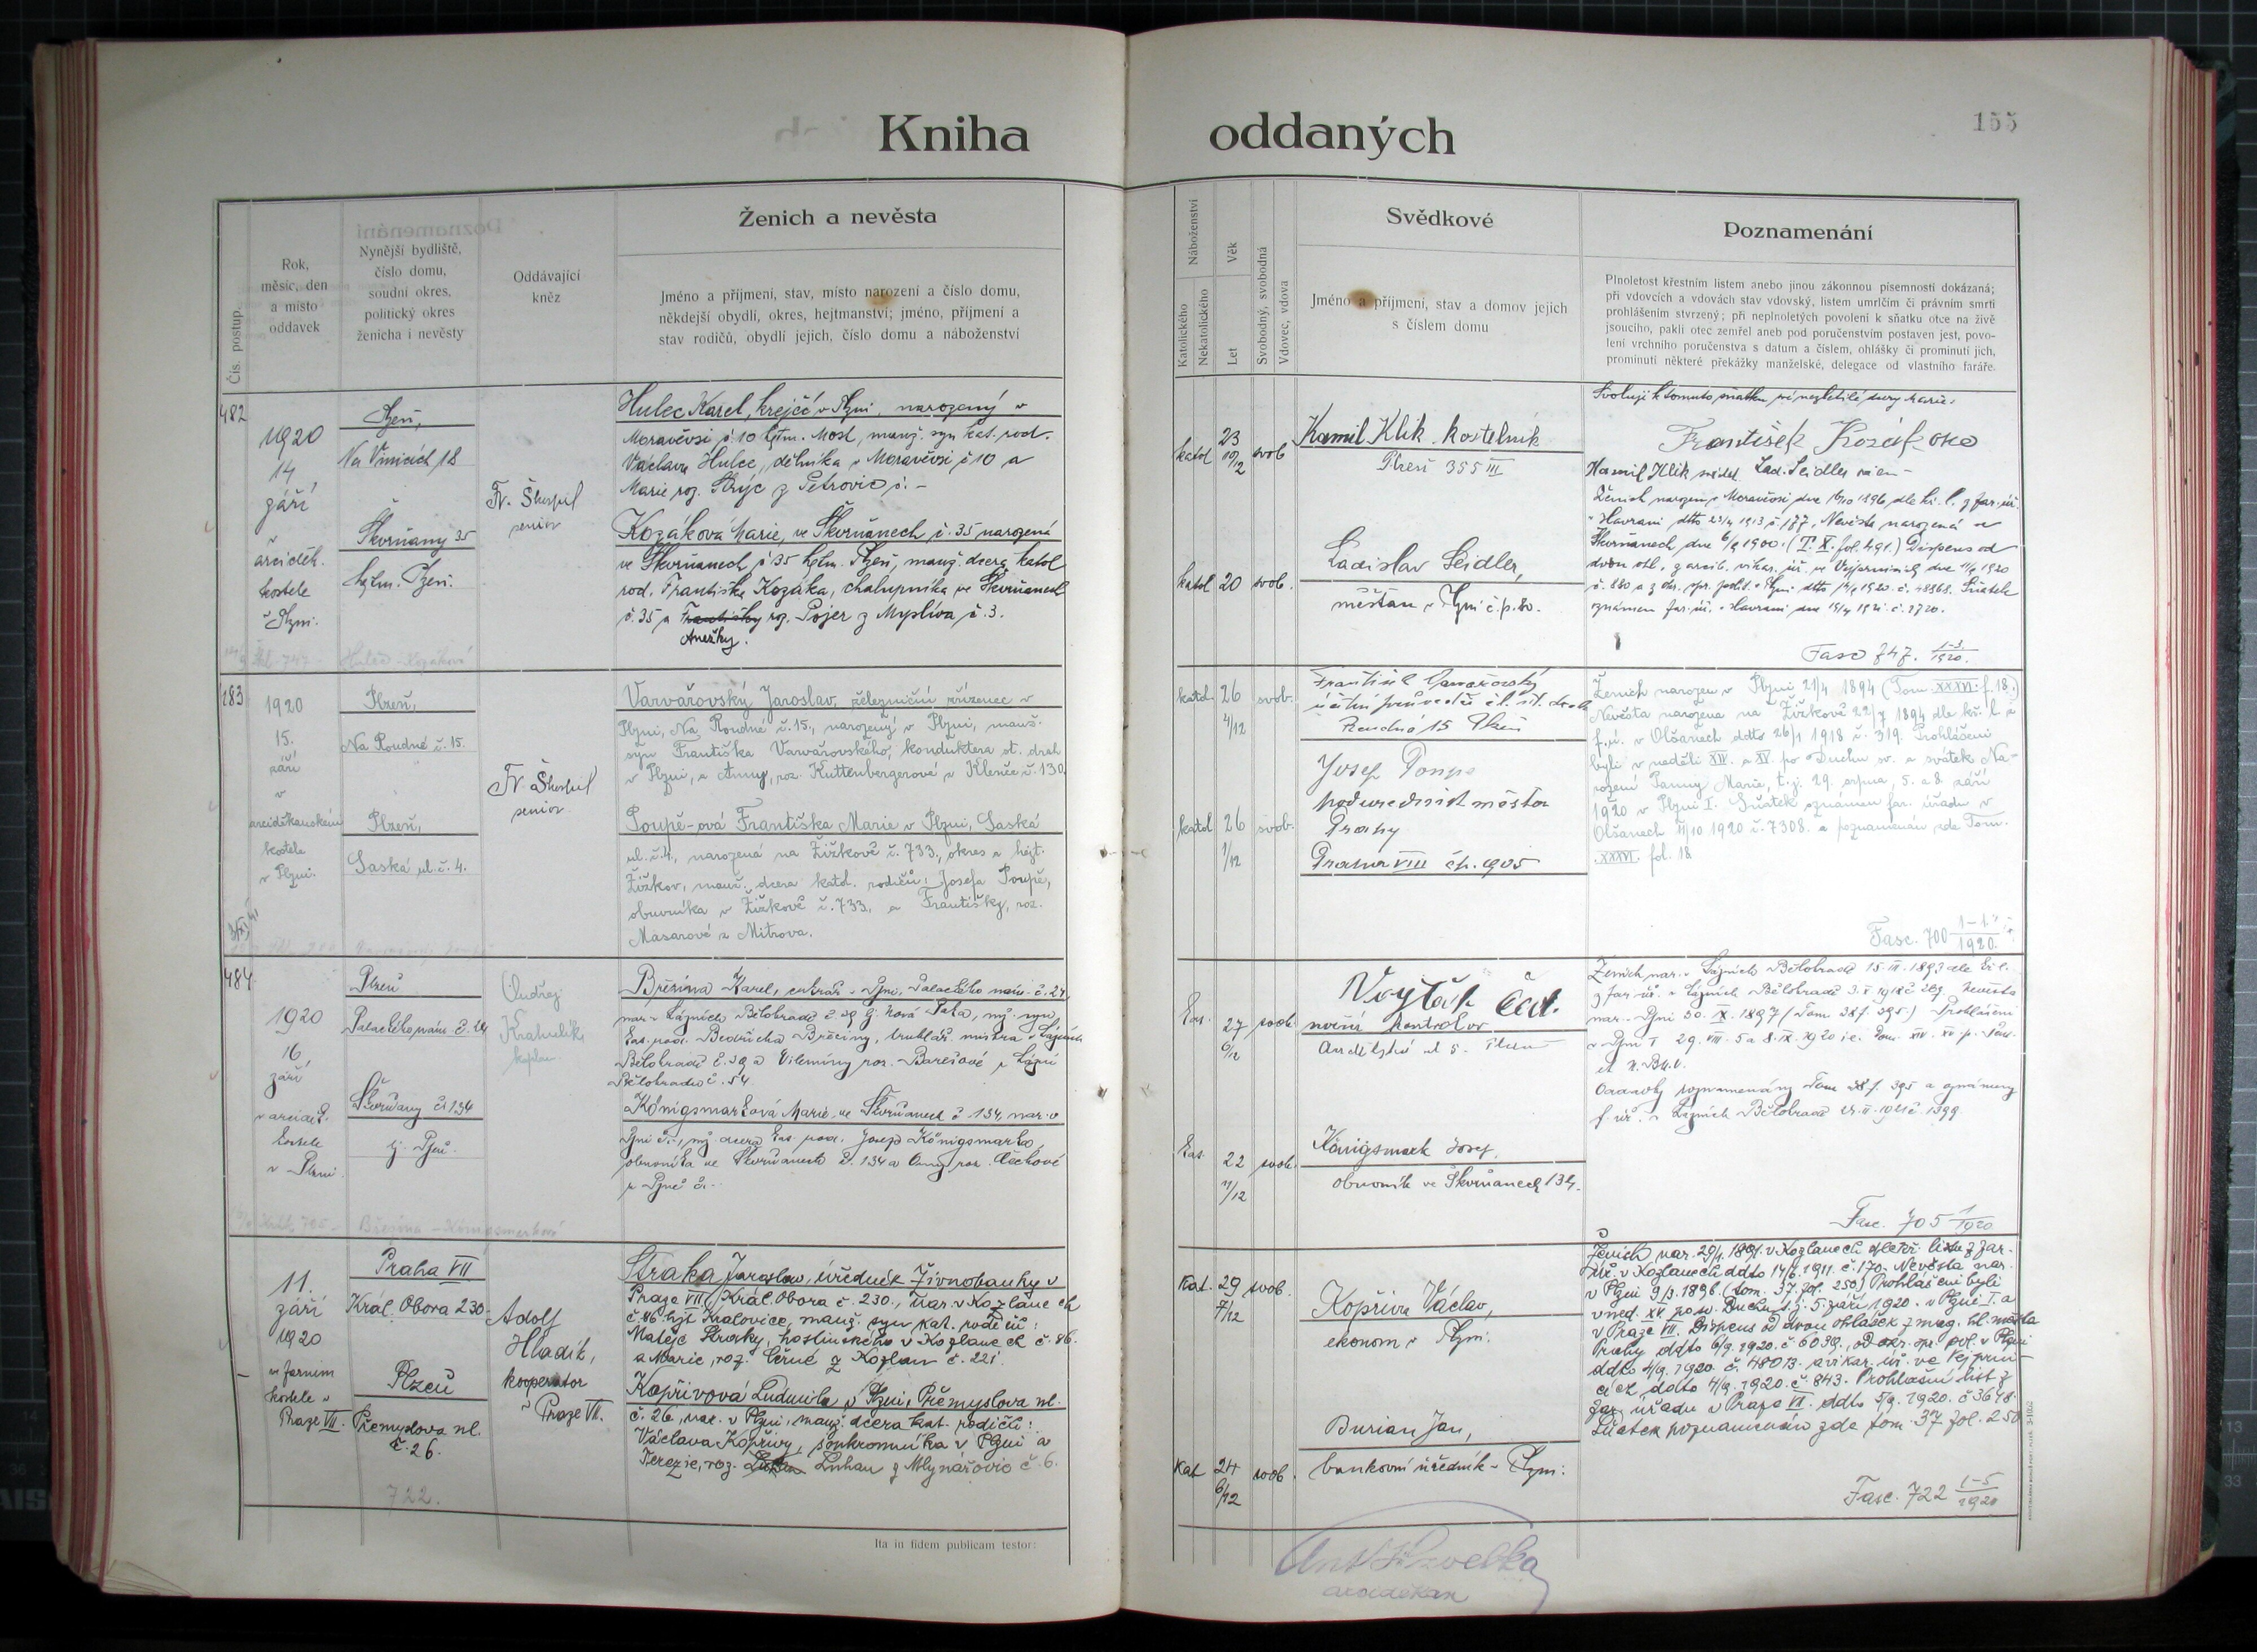 Kniha oddaných
155
Čís. postup.
Rok,
měsíc, den
a místo
oddavek
Nynější bydliště,
číslo domu,
soudní okres,
politický okres
ženicha i nevěsty
Oddávající
kněz
Ženich a nevěsta
Jméno a příjmení, stav, místo narození a číslo domu,
někdejší obydlí, okres, hejtmanství; jméno, příjmení a
stav rodičů, obydlí jejich, číslo domu a náboženství
Náboženství
Katolického
Nekatolického
Věk
Let
Svobodný, svobodná
Vdovec, vdova
Svědkové
Jméno a příjmení, stav a domov jejich
s číslem domu
Poznamenání
Plnoletost křestním listem anebo jinou zákonnou písemností dokázaná;
při vdovcích a vdovách stav vdovský, listem umrlčím či právním smrti
prohlášením stvrzený; při neplnoletých povolení k sňatku otce na živě
jsoucího, pakli otec zemřel aneb pod poručenstvím postaven jest, povo-
lení vrchního poručenstva s datum a číslem, ohlášky či prominutí jich,
prominutí některé překážky manželské, delegace od vlastního faráře.
482
1920
14
září
v
arciděk.
kostele
v Plzni.
Plzeň,
Na Vinicích 18
Škvrňany 35
hejtm. Plzeň.
Fr. Škorpil
senior
Hulec Karel, krejčí v Plzni, narozený v
Moravěvsi č. 10 hejtm. Most, manž. syn kat. rod.
Václava Hulce, dělníka v Moravěvsi č 10 a
Marie roz. Strýc z Petrovic č. -
Kozáková Marie, ve Škvrňanech č. 35 narozená
ve Škvrňanech č 35 hejtm. Plzeň, manž. dcera katol
rod. Františka Kozáka, chalupníka ve Škvrňanech
č. 35 a Františky roz. Pojer z Myslíva č. 3.
Anežky.
katol 23 10/12 svob
katol 20 svob.
Kamil Klik kostelník
Plzeň 355 III
Ladislav Seidler,
měšťan v Plzni č. p. 80.
Svoluji k tomuto sňatku své nezletilé dcery Marie.
František Kozák otec
Kamil Klik svědek Lad. Seidler
Ženich narozen v Moravěvsi dne 16/10 1896 dle kř. l. z far. úř.
v Havrani dtto 23/4 1913 č. 177, Nevěsta narozená ve
Škvrňanech, dne 6/9 1900. (T. X. fol. 491.) Dispens od
Fasc 747. 1-3/1920.
483
1920
15.
září
v
arciděkanském
kostele
v Plzni.
Plzeň,
Na Roudné č. 15.
Plzeň,
Saská ul. č. 4.
Fr. Škorpil
senior
Varvařovský Jaroslav, železniční zřízenec v
Plzni, Na Roudné č. 15., narozený v Plzni, manž.
syn Františka Varvařovského, konduktera st. drah
v Plzni, a Anny, roz. Kuttenbergerové z Klenče č. 130.
Poupě-ová Františka Marie v Plzni, Saská
ul. č. 4., narozená na Žižkově č. 733., okres a hejt.
Žižkov, manž. dcera katol. rodičů: Josefa Poupě,
obuvníka v Žižkově č. 733, a Františky, roz.
Masarové z Mitrova.
katol. 26 4/12 svob.
katol 26 1/12 svob.
František Varvařovský
Roudná 15 Plzeň
Josef Poupě
podúředník města
Prahy
Praha VIII čp. 905
Ženich narozen v Plzni 21/4 1894 (Tom. XXXVI. f. 18.)
Nevěsta narozena na Žižkově 22/7 1894 dle kř. l. z
f. ú. v Olšanech ddto 26/1 1918 č. 319. Prohlášeni
byli v neděli XIV. a XV. po Duchu sv. a svátek Na-
rození Panny Marie, t. j. 29. srpna, 5. a 8. září
1920 v Plzni I. Sňatek oznámen far. úřadu v
Olšanech 11/10 1920 č. 7308. a poznamenán zde Tom.
XXXVI. fol. 18
Fasc. 700 1-1/1920.
484
1920
16,
září
v arciděk.
kostele
v Plzni
Plzeň
Palackého nám. č. 24
Škvrňany č. 134
hj. Plzeň.
Ondřej
Krahulík
kaplan.
Březina Karel, cukrář v Plzni, Palackého nám. č. 24,
nar. v Lázních Bělohradě č 29 hj. Nová Paka, mž. syn
kat. rod. Bedřicha Březiny, truhlář. mistra v Lázních
Bělohradě č. 29 a Vilemíny roz. Barešové z Lázní
Bělohradu č. 54.
Königsmarková Marie ve Škvrňanech č 134, nar. v
Plzni č. -, mž. dcera kat. rod. Josefa Königsmarka,
obuvníka ve Škvrňanech č. 134 a Anny roz. Čechové
z Plzně č. -
kat. 27 6/12 svob.
kat. 22 11/12 svob.
Vojtěch Čed.
kontrolor
Königsmark Josef,
obuvník ve Škvrňanech 134.
Ženich nar. v Lázních Bělohradě 15. III. 1893 dle kř. l.
Fasc. 705 1/1920
11.
září
1920
ve farním
kostele v
Praze VII.
Praha VII
Král. Obora 230.
Plzeň
Přemyslova ul.
č. 26.
722.
Adolf
Hladík,
kooperator
v Praze VII.
Straka Jaroslav, úředník Živnobanky v
Praze VII, Král. Obora č. 230., nar. v Kozlanech
č. 86 hjt Kralovice, manž. syn kat. rodičů:
Matěje Straky, hostinského v Kozlanech č. 86.
a Marie, roz. Černé z Kozlan č. 221.
Kopřivová Ludmila, v Plzni, Přemyslova ul.
č. 26, nar. v Plzni, manž. dcera kat. rodičů:
Václava Kopřivy, soukromníka v Plzni a
Terezie, roz. Luhan z Mlynářovic č. 6.
Kat. 29 7/12 svob.
Kat 24 6/12 svob.
Kopřiva Václav,
ekonom v Plzni.
Burian Jan,
bankovní úředník - Plzni.
Ženich nar. 29/1. 1891. v Kozlanech dle kř. listu z far.
úř. v Kozlanech ddto 14/6. 1911. č. 170. Nevěsta nar.
v Plzni 9/3. 1896. (tom. 37. fol. 250) Prohlášeni byli
v ned. XV. po sv. Duchu t. j. 5. září 1920. v Plzni I. a
v Praze VII. Dispens od dvou ohlášek z mag. hl. města
Prahy ddto 6/9. 1920. č 6039., od okr. spr. pol. v Plzni
ddto 4/9. 1920. č. 48013. a vikar. úř. ve Vejprni-
cích ddto 4/9. 1920. č. 843. Prohlašní list z
far. úřadu v Praze VII. ddto 5/9. 1920. č 3648.
Sňatek poznamenán zde tom. 37 fol. 250
Fasc. 722 1-5/1920
Ita in fidem publicam testor:
arciděkan